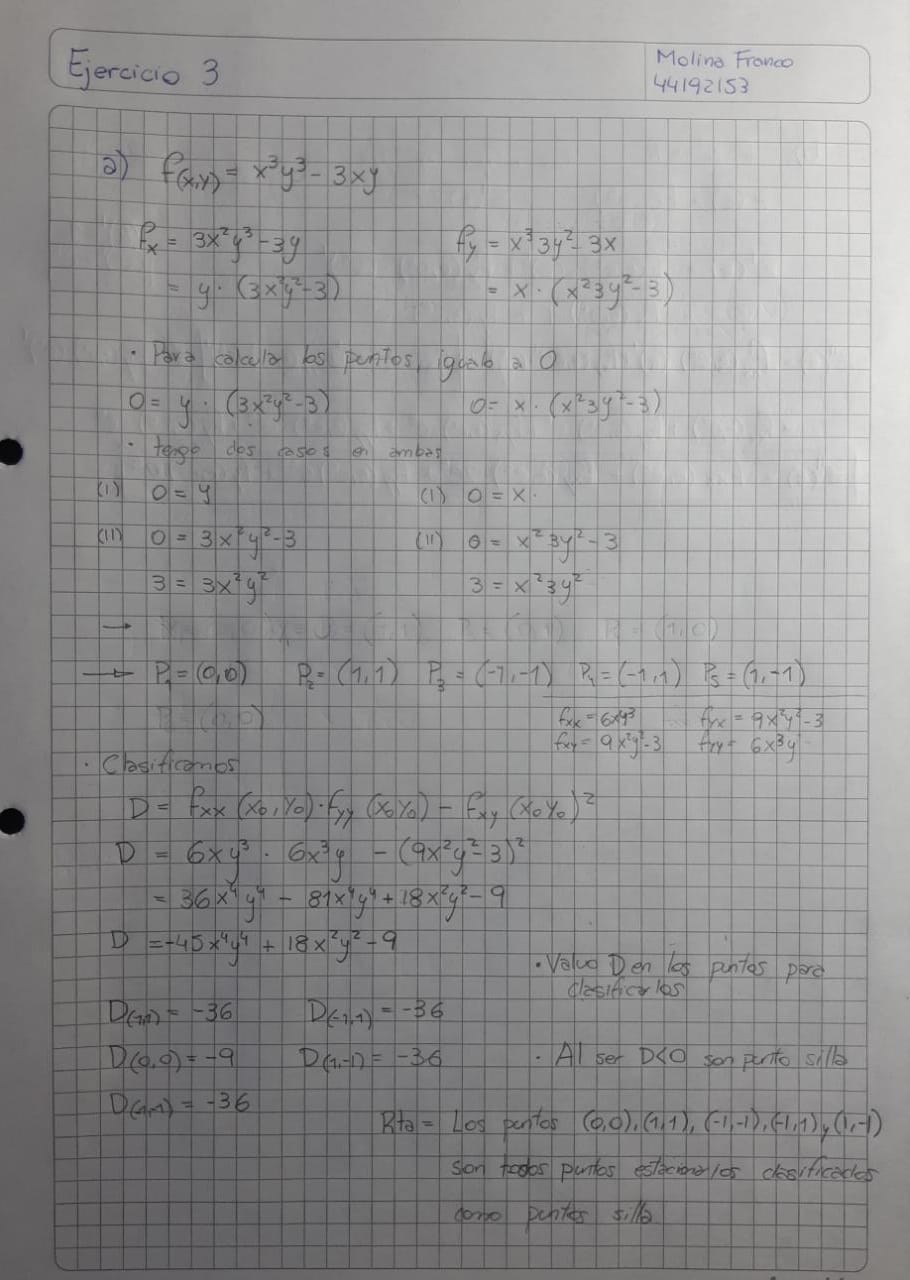 Ejercicio 3
Molina Franco
44192153
a) f(x,y) = x³y³ - 3xy
fx = 3x²y³ - 3y fy = x³3y² - 3x
= y · (3x²y² - 3) = x · (x²3y² - 3)
· Para calcular los puntos, igualo a 0
0 = y · (3x²y² - 3) 0 = x · (x²3y² - 3)
· tengo dos casos en ambas
(I) 0 = y (I) 0 = x ·
(II) 0 = 3x²y² - 3 (II) 0 = x²3y² - 3
3 = 3x²y² 3 = x²3y²
→
→ P₁ = (0,0) P₂ = (1,1) P₃ = (-1,-1) P₄ = (-1,1) P₅ = (1,-1)
fxx = 6xy³ fyx = 9x²y² - 3
fxy = 9x²y² - 3 fyy = 6x³y
· Clasificamos
D = fxx (x₀,y₀) · fyy (x₀y₀) - fxy (x₀y₀)²
D = 6xy³ · 6x³y - (9x²y² - 3)²
= 36x⁴y⁴ - 81x⁴y⁴ + 18x²y² - 9
D = -45x⁴y⁴ + 18x²y² - 9
· Valuo D en los puntos para
clasificarlos
D(1,1) = -36 D(-1,1) = -36
D(0,0) = -9 D(1,-1) = -36 · Al ser D<0 son punto silla
= -36
Rta = Los puntos (0,0), (1,1), (-1,-1), (-1,1) y (1,-1)
son todos puntos estacionarios clasificados
como puntos silla